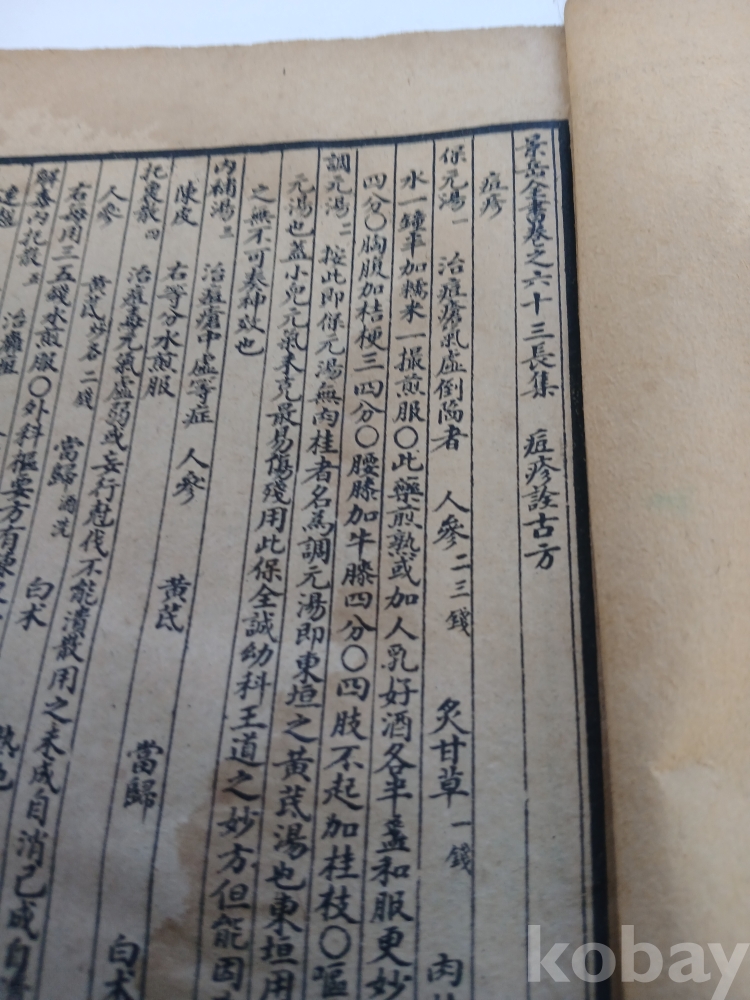 景岳全書卷之六十三長集 痘疹詮古方
痘疹
保元湯一 治痘瘡氣虛倒陷者 人參二三錢 炙甘草一錢 肉
水一鐘半加糯米一撮煎服〇此藥煎熟或加人乳好酒各半盞和服更妙
四分〇胸腹加桔梗三四分〇腰膝加牛膝四分〇四肢不起加桂枝〇嘔
調元湯二 按此即保元湯無肉桂者名爲調元湯即東垣之黃芪湯也東垣用
元湯也蓋小兒元氣未充最易傷殘用此保全誠幼科王道之妙方但能因
之無不可奏神效也
內補湯三 治痘瘡中虛等症 人參 黃芪 當歸 白术
陳皮 右等分水煎服
托裏散四 治痘毒元氣虛弱或妄行尅伐不能潰散用之未成自消已成自
人參 黃芪炒各二錢 當歸酒洗 白术 熟
右每用三五錢水煎服〇外科樞要方有陳
解毒內托散五 治癰疽
連翹
kobay